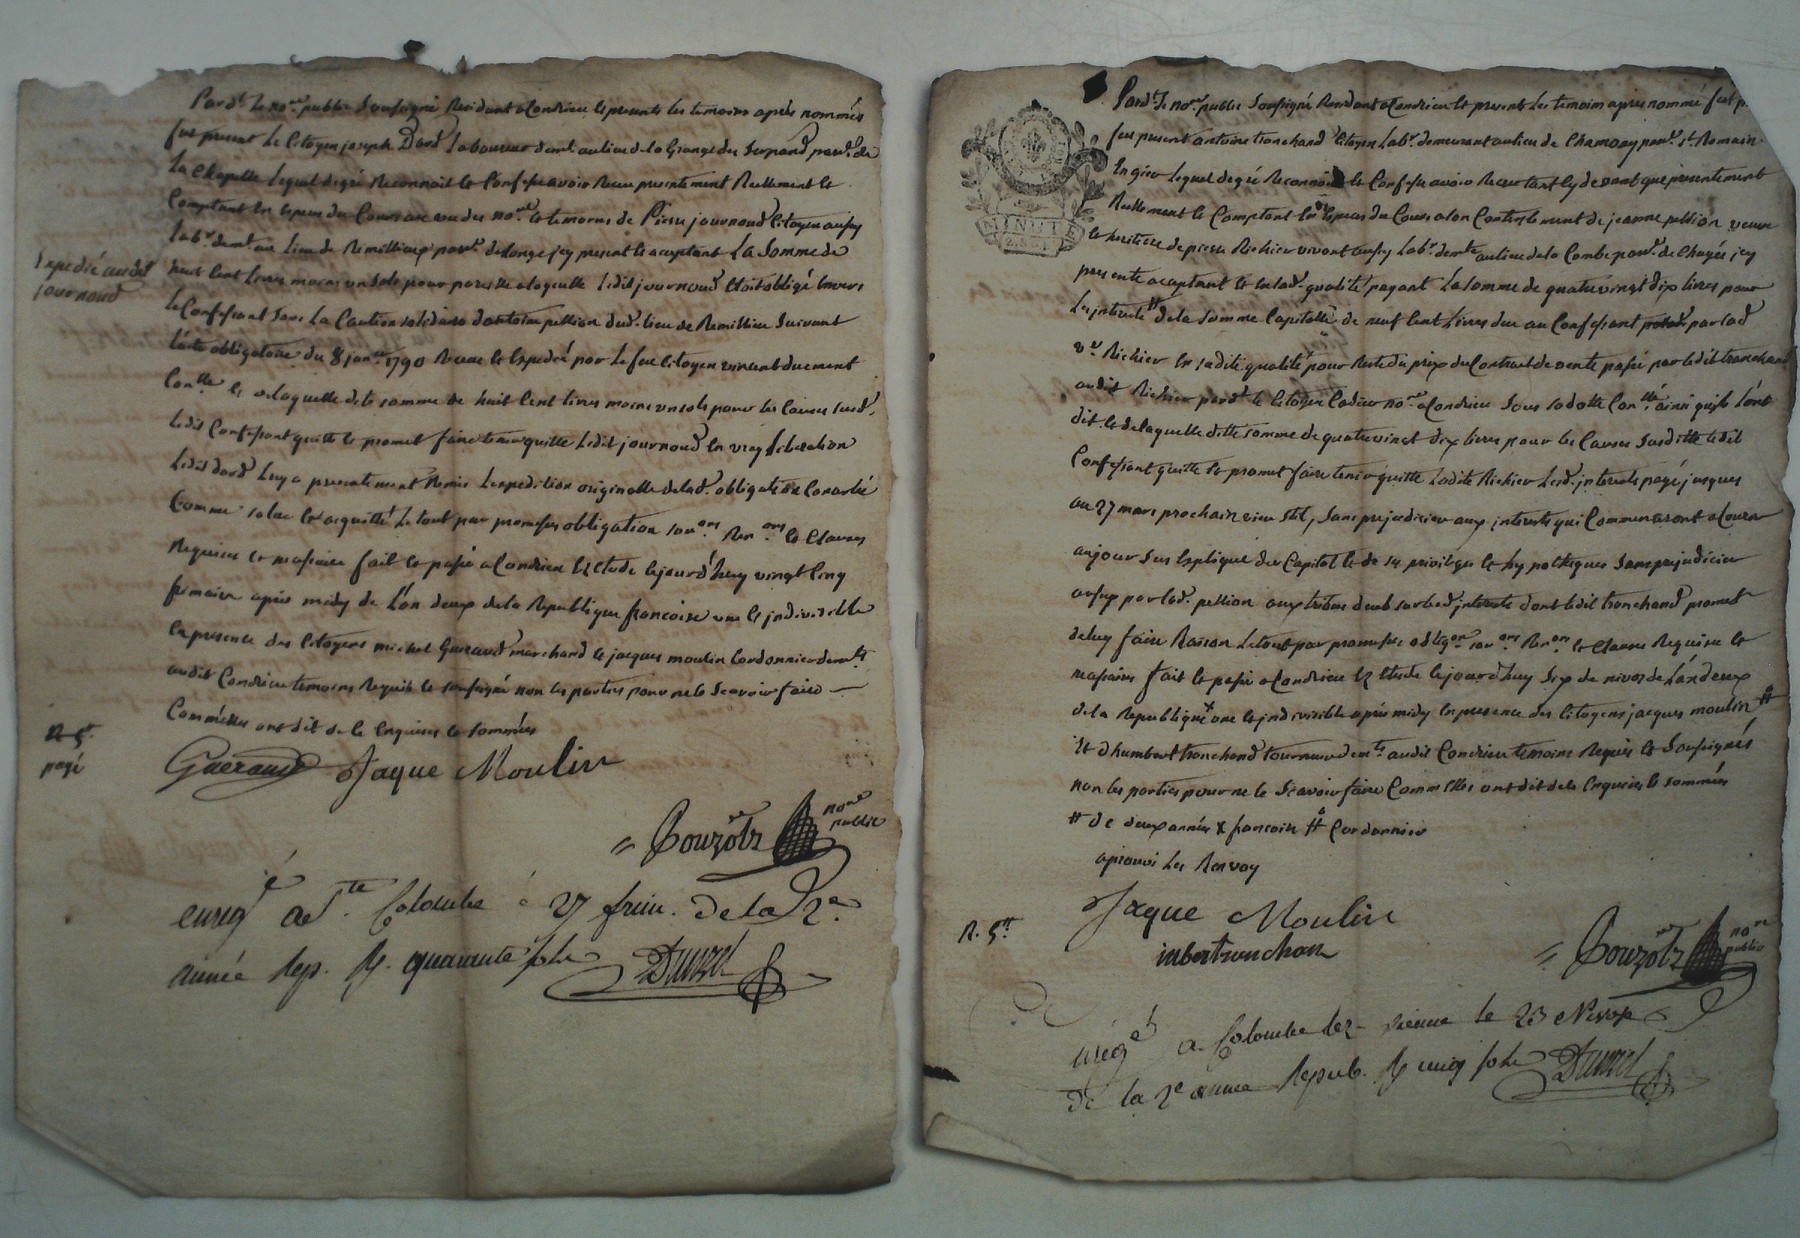 Pard.t le no.re public soussigné Residant a Condrieu les presents les temoins après nommés
fut present Le Citoyen joseph Dard Laboureur dem.t au lieu de la Grange du Serpand par.se de
La Chapelle Lequel de gré Reconnoit et Confesse avoir Receu presentement Reellement et
Comptant En especes du Cours au veu des no.re et temoins de Pierre journoud Citoyen aussy
Lab.r dem.t au Lieu de Remillieux par.se de longe jcy present et aceptant La somme de
huit Cent Livres moins un sols pour pareille a laquelle Ledit journoud Etoit obligé Envers
le Confessant sous La Caution solidaire d'antoine pellion dud. lieu de Remillieu suivant
l'acte obligatoire du 8 jan.er 1790 Receue et Expedié par Le feu Citoyen vincent duement
Con.lle et de laquelle dite somme de huit Cent livres moins un sols pour les Causes susd.
Ledit Confessant quitte et promet faire tenir quitte Ledit journoud En vray liberation
Ledit dard Luy a presentement Remis L'expedition originalle de lad. obligation Cancellée
Comme solue et acquitté Le tout par promesses obligation soum.ons Ren.ons et Clauses
Requises et necessaires fait et passé a Condrieu En Etude Cejourd'huy vingt Cinq
frimaire après midy de L'an deux de la Republique francoise une et jndivisible
En presence des Citoyens michel Gueraud marchand et jacques moulin Cordonnier dem.ts
audit Condrieu temoins Requis et soussigné non les parties pour ne le Scavoir faire
Comm'elles ont dit de ce Enquises et sommées
Expedié audit
journoud
R. 5.
payé
Gueraud Jaque Moulin
Bouzotz no.re
public
enreg.é a S.te Colombe le 27 frim. de la 2.e
année Rep. R. quarante sols Duvzel
Pard.t le no.re public soussigné Residant a Condrieu et present Les temoins apres nommé fut p.
fut present antoine tranchand Citoyen Lab.r demeurant au lieu de Chamoay par.se S.t Romain
En gier Lequel de gré Reconnoit et Confesse avoir Receu tant cy devant que presentement
Reellement et Comptant En Especes du Cours a son Contentement de jeanne pellion veuve
et heritiere de pierre Richier vivant aussy Lab.r dem.t au lieu de la Combe par.se de Chuyés jcy
presente aceptant et En lad. qualité payant La somme de quatre vingt dix Livres pour
Les interets # de la somme Capitalle de neuf Cent Livres due au Confessant par lad
v.e Richier En sadite qualité pour Reste du prix du Contract de vente passé par ledit tranchand
audit Richier pard.t le Citoyen Cadier no.re a Condrieu sous sa datte Con.llé ainsi qu'ils l'ont
dit et de laquelle ditte somme de quatre vinct dix livres pour les Causes susditte ledit
Confessant quitte et promet faire tenir quitte Ladite Richier Lesd. interets payé jusques
au 27 mars prochain vieu stil, sans prejudicier aux jnterets qui Commenceront a Courir
aujour sus Expliqué du Capital et de ses privileges et hypotheques sans prejudicier
aussy par lad. pellion aux tributs deub sur lesd. jnterets dont ledit tranchand promet
de luy faire Raison Le tout par promesse oblig.on soum.ons Ren.ons et Clauses Requises et
necessaires fait et passé a Condrieu En Etude Cejourd'huy six de nivos de L'an deux
de la Republique x une et jndivisible après midy En presence des Citoyens jacques moulin #
Et d'humbert tranchand tourneur dem.ts audit Condrieu temoins Requis et Soussignés
non les parties pour ne le Scavoir faire Comm'elles ont dit de ce Enquises et sommées
# de deux années x francoise # Cordonnier
aprouvé Les Renvoy
MINUTE
R. 5.s
Jaque Moulin
inbertranchan
Bouzotz no.re
public
enreg.é a Colombe lez Vienne le 23 Nivose
de la 2.e année Repub. R cinq sols Duvzel